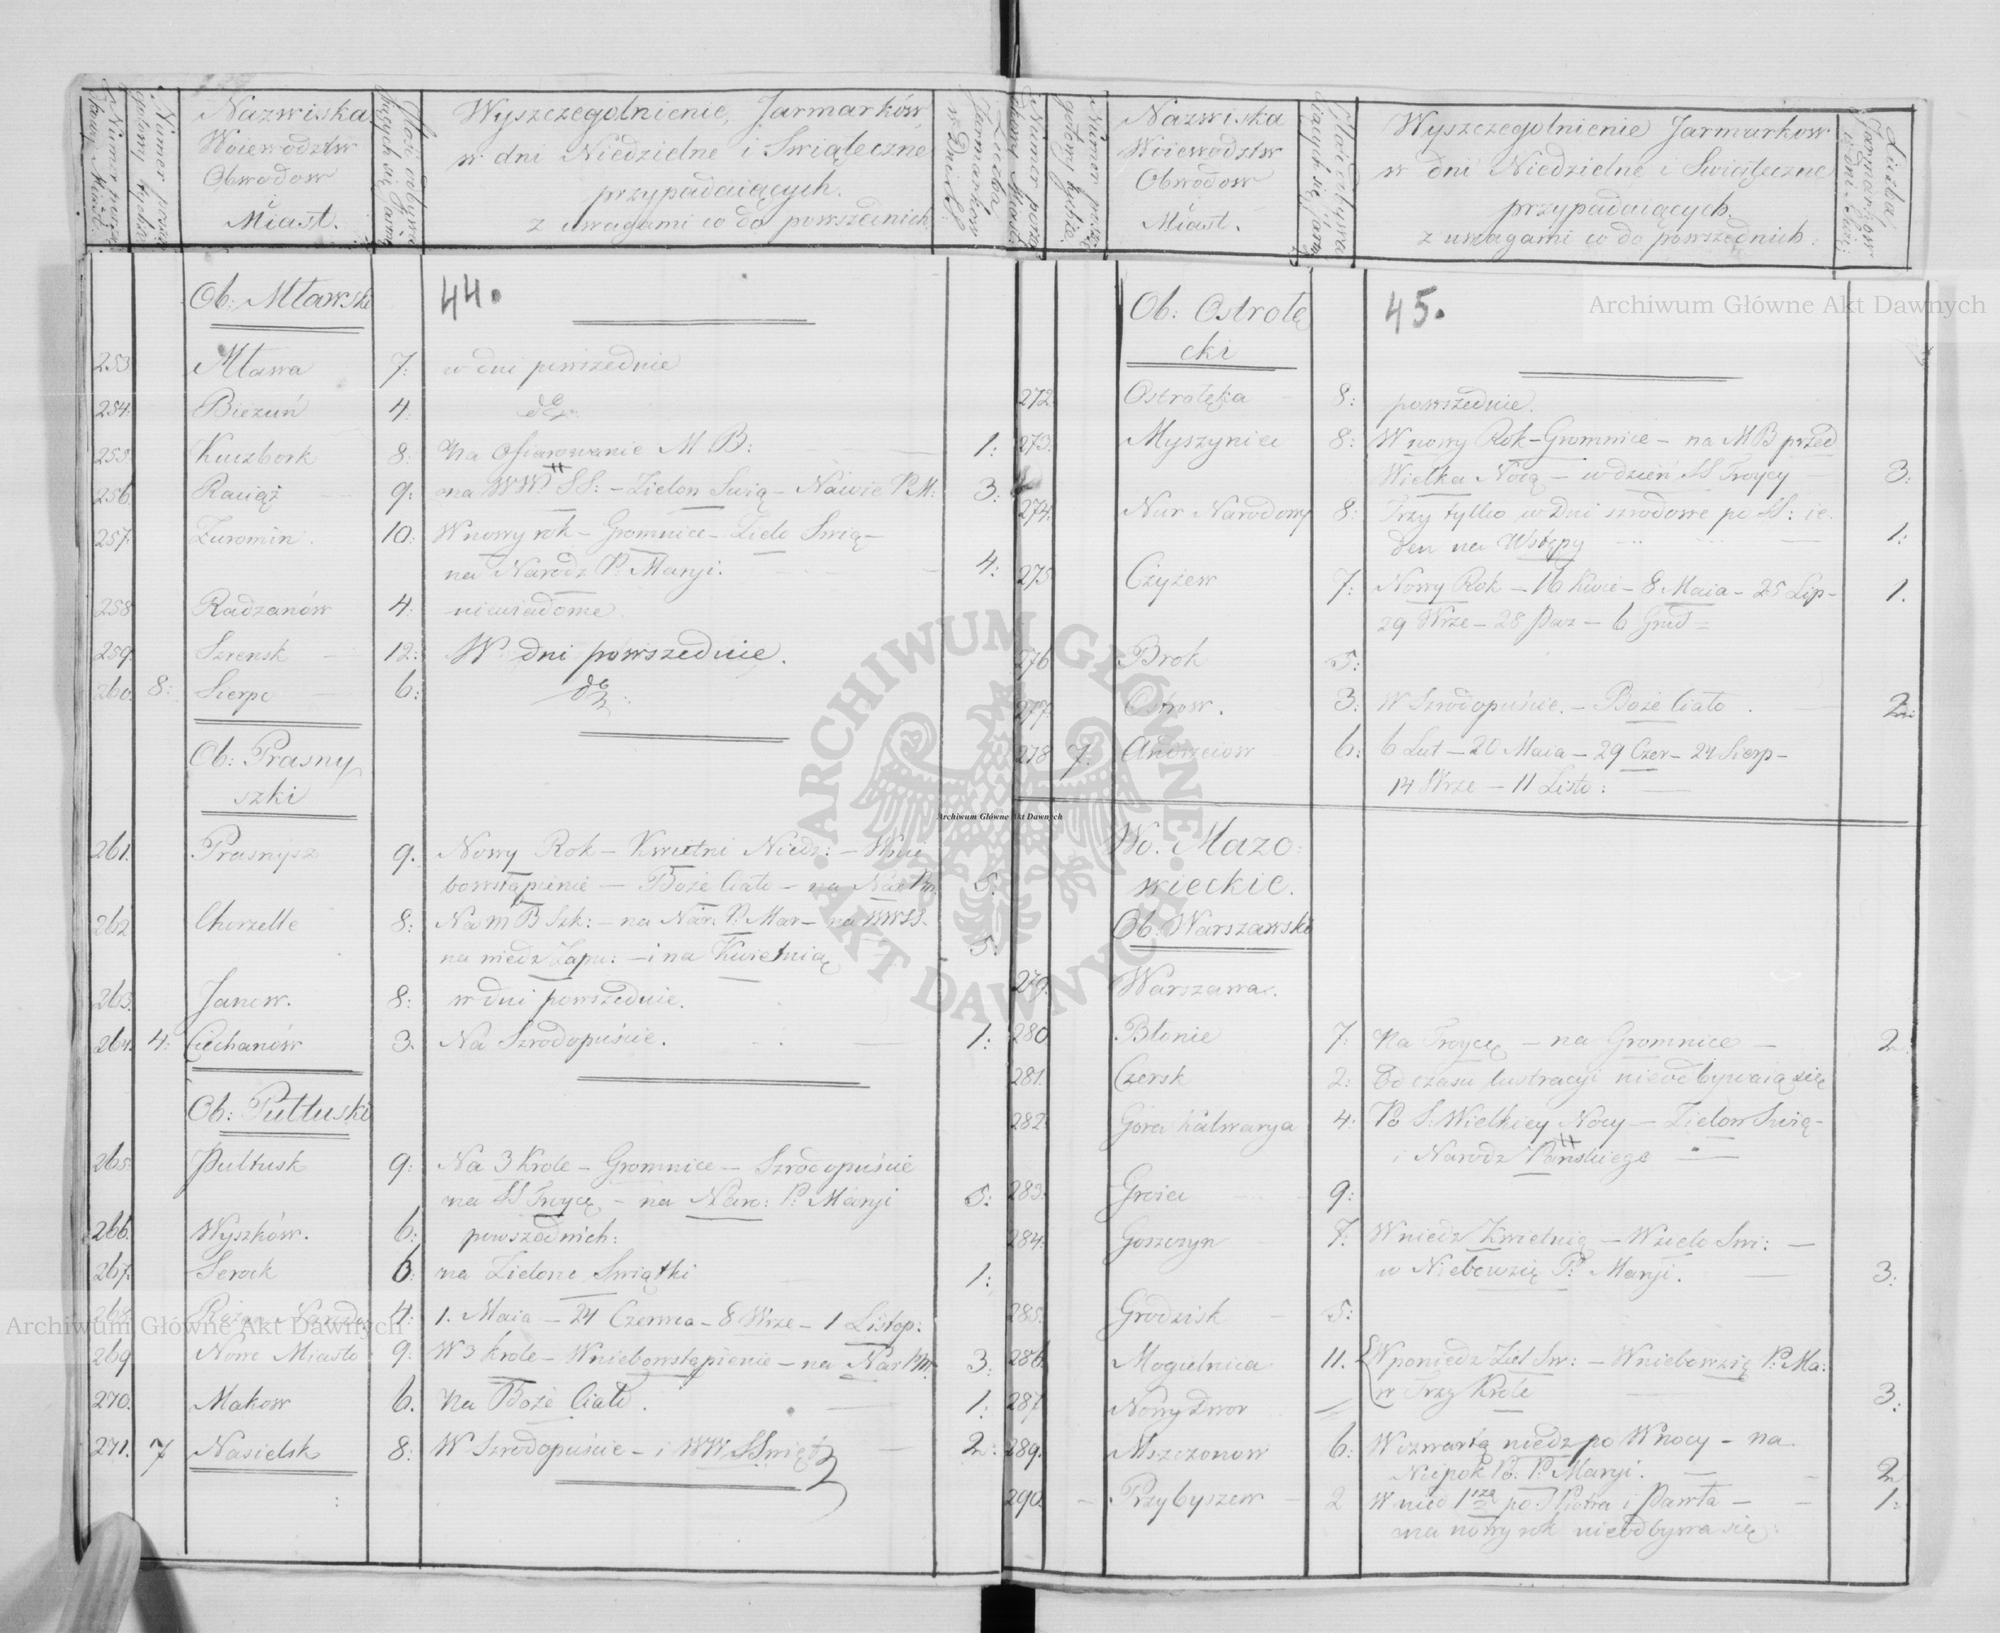 Nazwiska
Woiewodztw
Obwodow
i
Miast.
Wyszczegolnienie Jarmarków
w dni Niedzielne i Swiąteczne
przypadaiących.
z uwagami co do powszednich
Ob: Mławski
44.
253. Mława 7. w dni powszednie
254. Biezuń 4. do
255. Kuczbork 8: na Ofiarowanie M B: 1:
256. Raciąż 9: na WW. SS: – Zielon Swią – Náwie P.M: 3:
257. Zuromin. 10: W nowy rok – Gromnice – Zielo Swią –
na Narodz P: Maryi. 4:
258. Radzanów 4: niewiadome
259. Szrensk 12: W dni powszednie.
260. 8: Sierpc 6: do
Ob: Prasny
szki
261. Prasnysz 9. Nowy Rok – Kwietni Niedz: – Wnie
bowstąpienie – Boże Ciało – na Nár Pm. 5.
262 Chorzelle 8: Na m B Szk: – na Nar. P. Mar – na WWSS.
na niedz Zapu: – i na Kwietnią 5.
263. Janow. 8: w dni powszednie.
264. 4: Ciechanów 3. Na Szrodopuście. 1:
Ob: Pułtuski
265. Pułtusk 9: Na 3 Krole – Gromnice – Szrodopuście
na SS Troycę – na Naro: P: Maryi 5:
266. Wyszków. 6: powszednich:
267. Serock 6: na Zielone Swiątki 1:
268. 4: 1. Maia – 24 Czerwca – 8 Wrze – 1 Listop:
269 Nowe Miasto 9: W 3 krole – Wniebowstąpienie – na Nar Pm. 3:
270. Makow 6. na Boże Ciało. 1:
271. 7 Nasielsk 8: W Szrodopuście – i WW SSwięt 2:
Nazwiska
Woiewodztw
Obwodow
i
Miast.
Wyszczegolnienie Jarmarkow
w dni Niedzielne i Swiąteczne
przypadaiących.
z uwagami co do powszednich.
Ob: Ostrołę
cki
45.
272. Ostrołęka 8: powszednie.
273. Myszyniec 8: W nowy Rok – Gromnice – na M B przed
Wielka Nocą – w dzień SS Troycy – 3:
274. Nur Narodowy 8: Trzy tylko w dni szrodowe po SS: ie
den na Wstępy 1:
275. Czyżew 7: Nowy Rok – 16 Kwie – 8 Maia – 25 Lip – 1.
29 Wrze – 28 Paz – 6 Grud
276 Brok 5:
277. Ostrow. 3: W Szrodopuście. – Boże Ciało. 2:
278 7. Andrzeiow 6: 6 Lut – 20 Maia – 29 Czer – 24 Sierp –
14 Wrze – 11 Listo:
Wo. Mazo
wieckie.
Ob: Warszawski
279. Warszawa.
280 Błonie 7: Na Troycę – na Gromnice – 2.
281. Czersk 2: Od czasu lustracyi nieodbywaią się
282. Góra Kalwarya 4: Po S: Wielkiey Nocy – Zielon Swią –
i Narodz Pańskiego
283. Groiec 9:
284. Goszczyn 7: W niedz Kwietnią – W zielo Swi: –
w Niebowzię P: Maryi. 3:
285. Grodzisk 5:
286. Mogielnica 11. W poniedz Ziel Sw: – W niebowzię P: Ma:
w Trzy Krole 3.
287 Nowy Dwor
289. Mszczonow 6: W czwartą niedz po W nocy – na
Niepok Po: P: Maryi. 2
290. Przybyszew 2 W nied 1szą po S Piotra i Pawła – 1:
na nowy rok nieodbywa się
Archiwum Główne Akt Dawnych
Archiwum Główne Akt Dawnych
Archiwum Główne Akt Dawnych
ARCHIWUM GŁÓWNE
AKT DAWNYCH